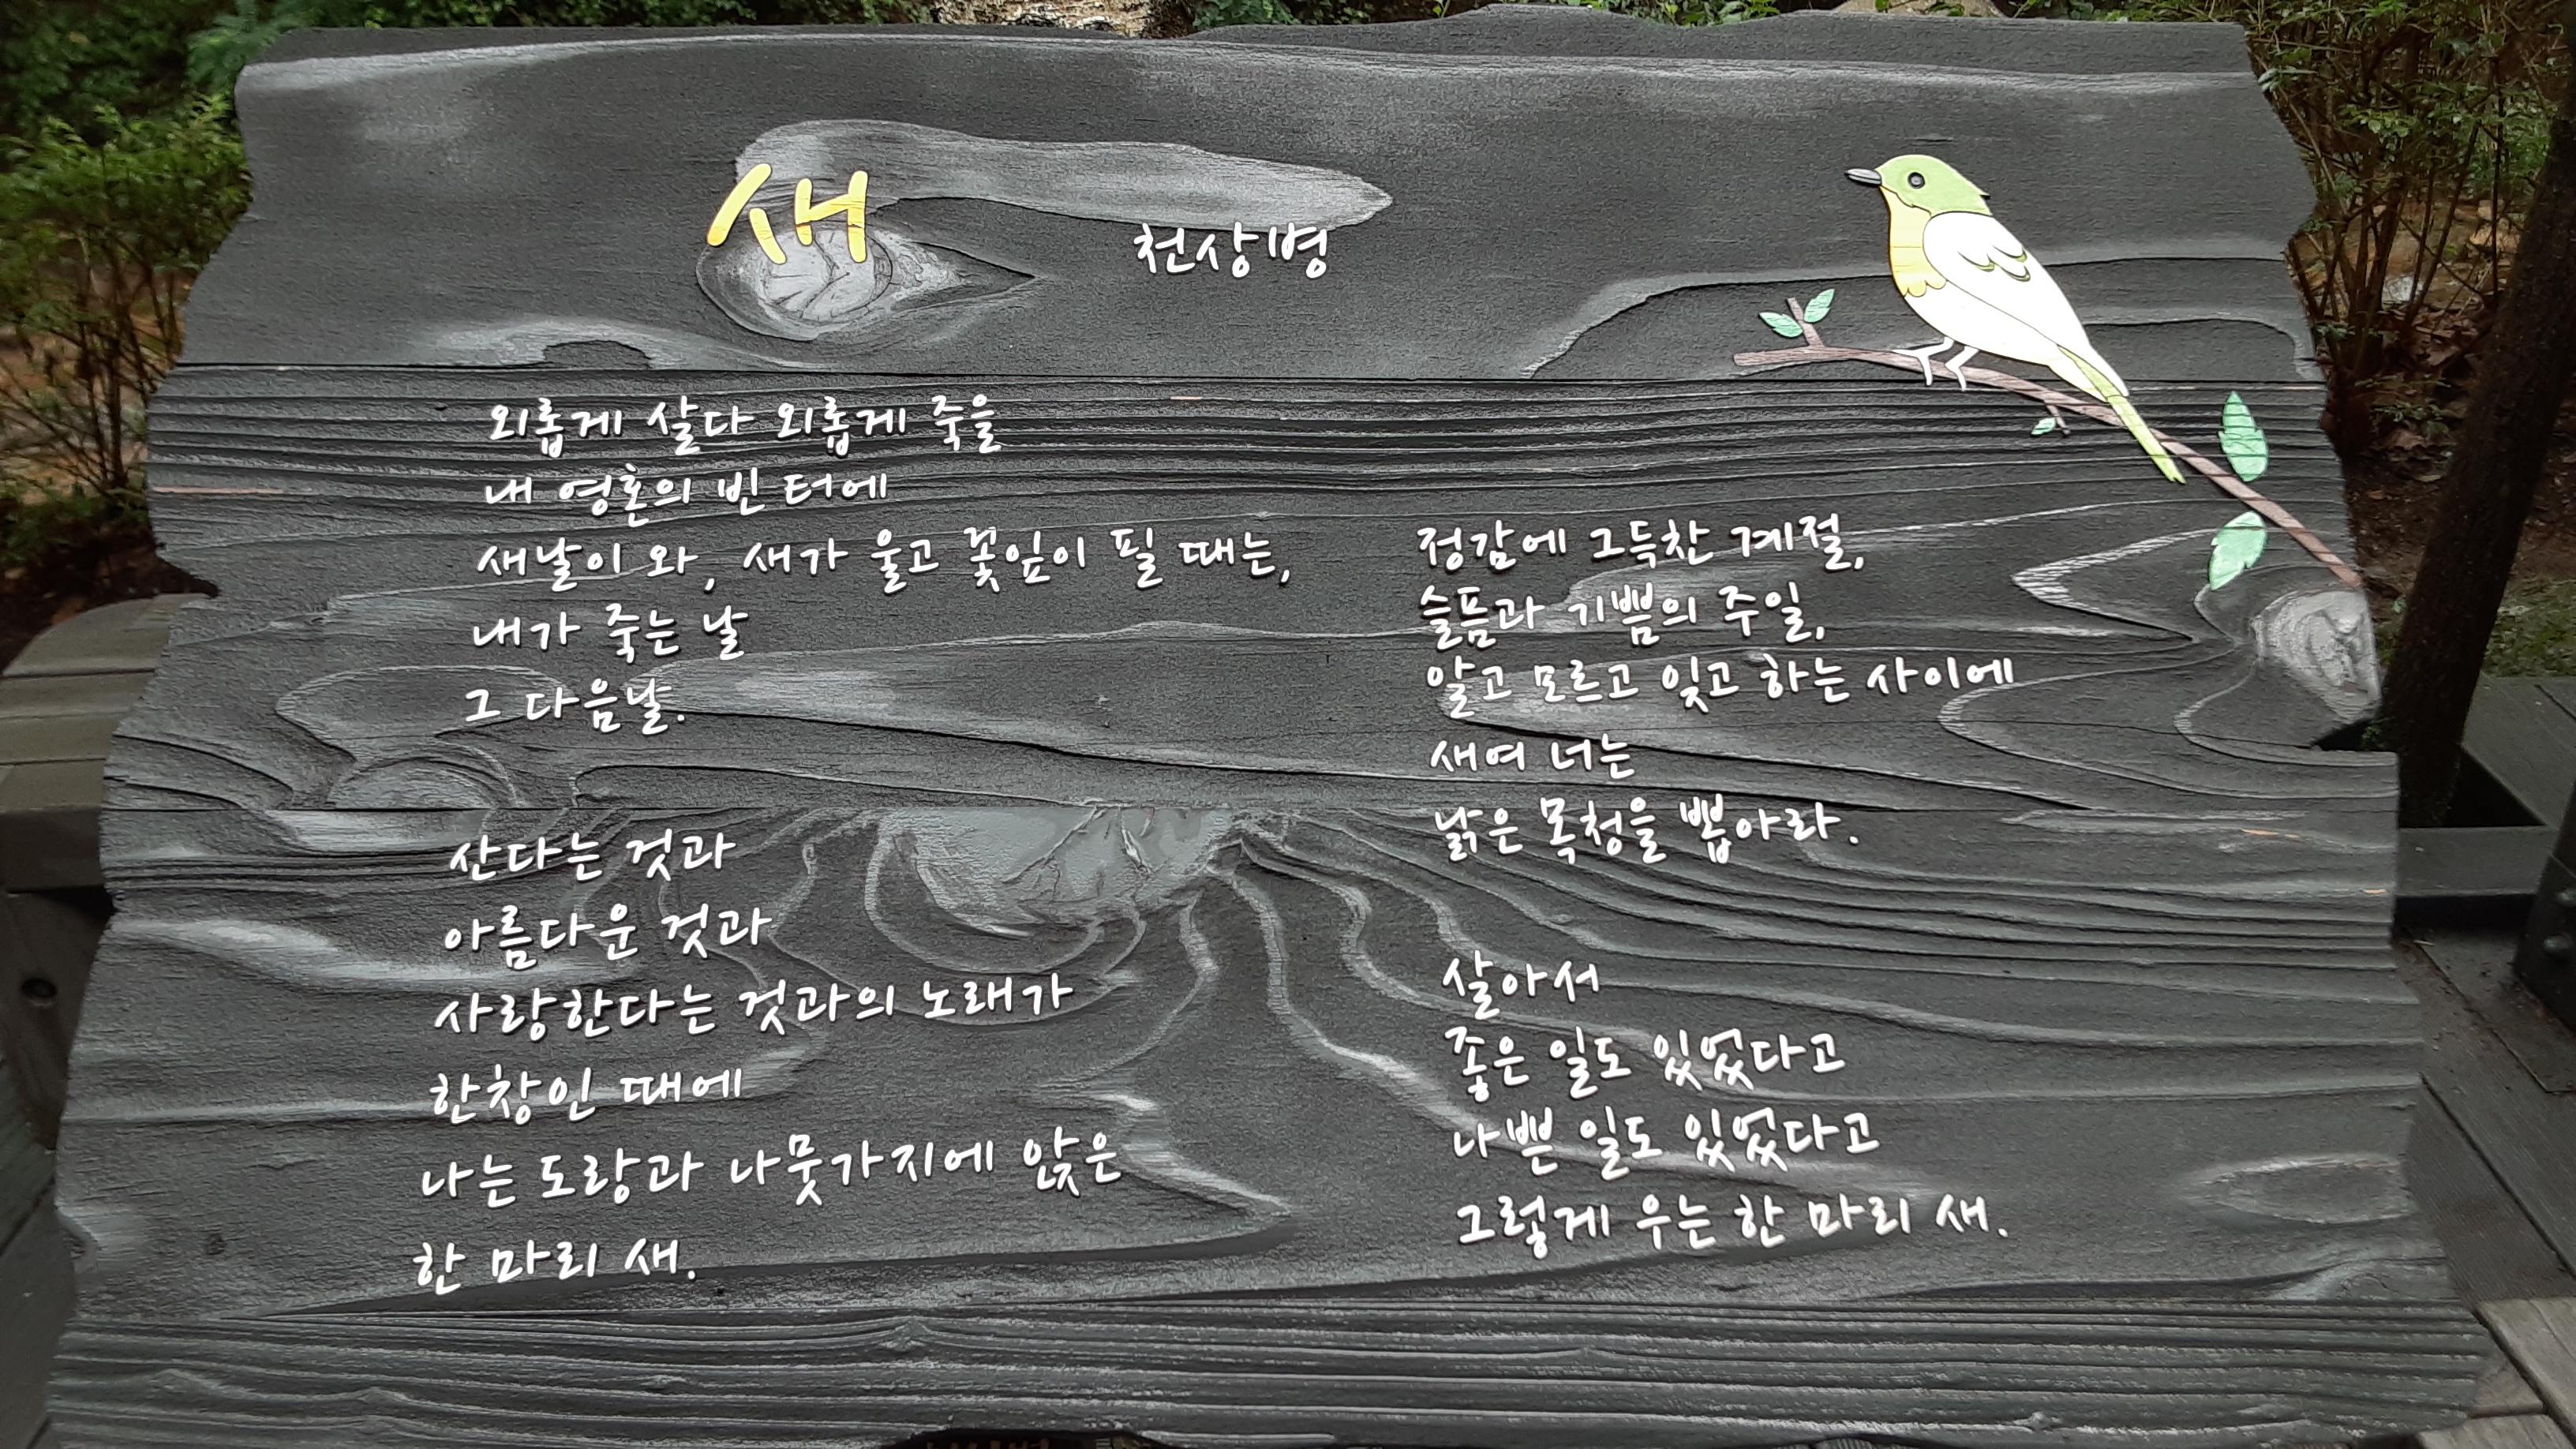 새
천상병
외롭게 살다 외롭게 죽을
내 영혼의 빈 터에
새날이 와, 새가 울고 꽃잎이 필 때는,
내가 죽는 날
그 다음날.
산다는 것과
아름다운 것과
사랑한다는 것과의 노래가
한창인 때에
나는 도랑과 나뭇가지에 앉은
한 마리 새.
정감에 그득찬 계절,
슬픔과 기쁨의 주일,
알고 모르고 잊고 하는 사이에
새여 너는
낡은 목청을 뽑아라.
살아서
좋은 일도 있었다고
나쁜 일도 있었다고
그렇게 우는 한 마리 새.